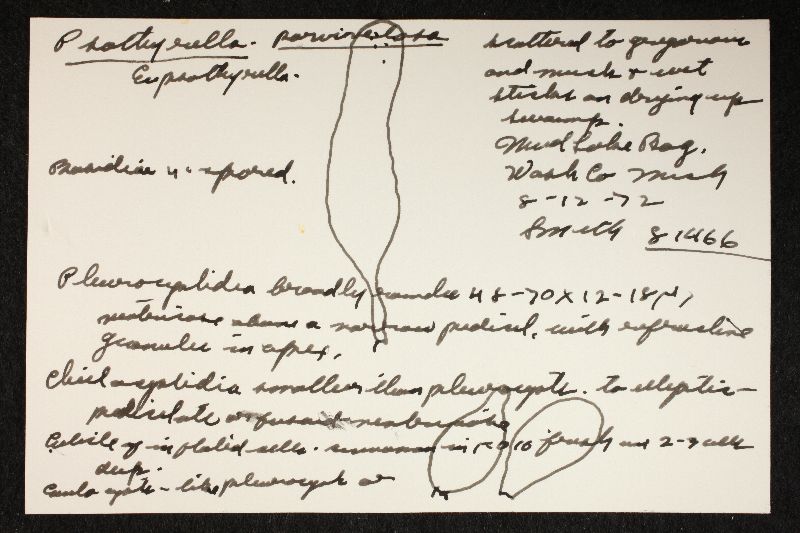 Psathyrella.
Eupsathyrella.
Basidia 4-spored.
scattered to gregarious
and muck & wet
sticks on drying up
swamp.
Mud Lake Bog.
Wash Co Mich
8-12-72
Smith 81466
Pleurocystidia broadly 48-70 X 12-18 µ,
ventricose above a narrow pedicel, with refractive
granules in apex.
Cheilocystidia smaller than pleurocysts. to elliptic-
pedicellate or fusoid-ventricose
Cuticle of inflated cells. in KOH 2-3 cells
deep.
Caulocysts - like pleurocysts or